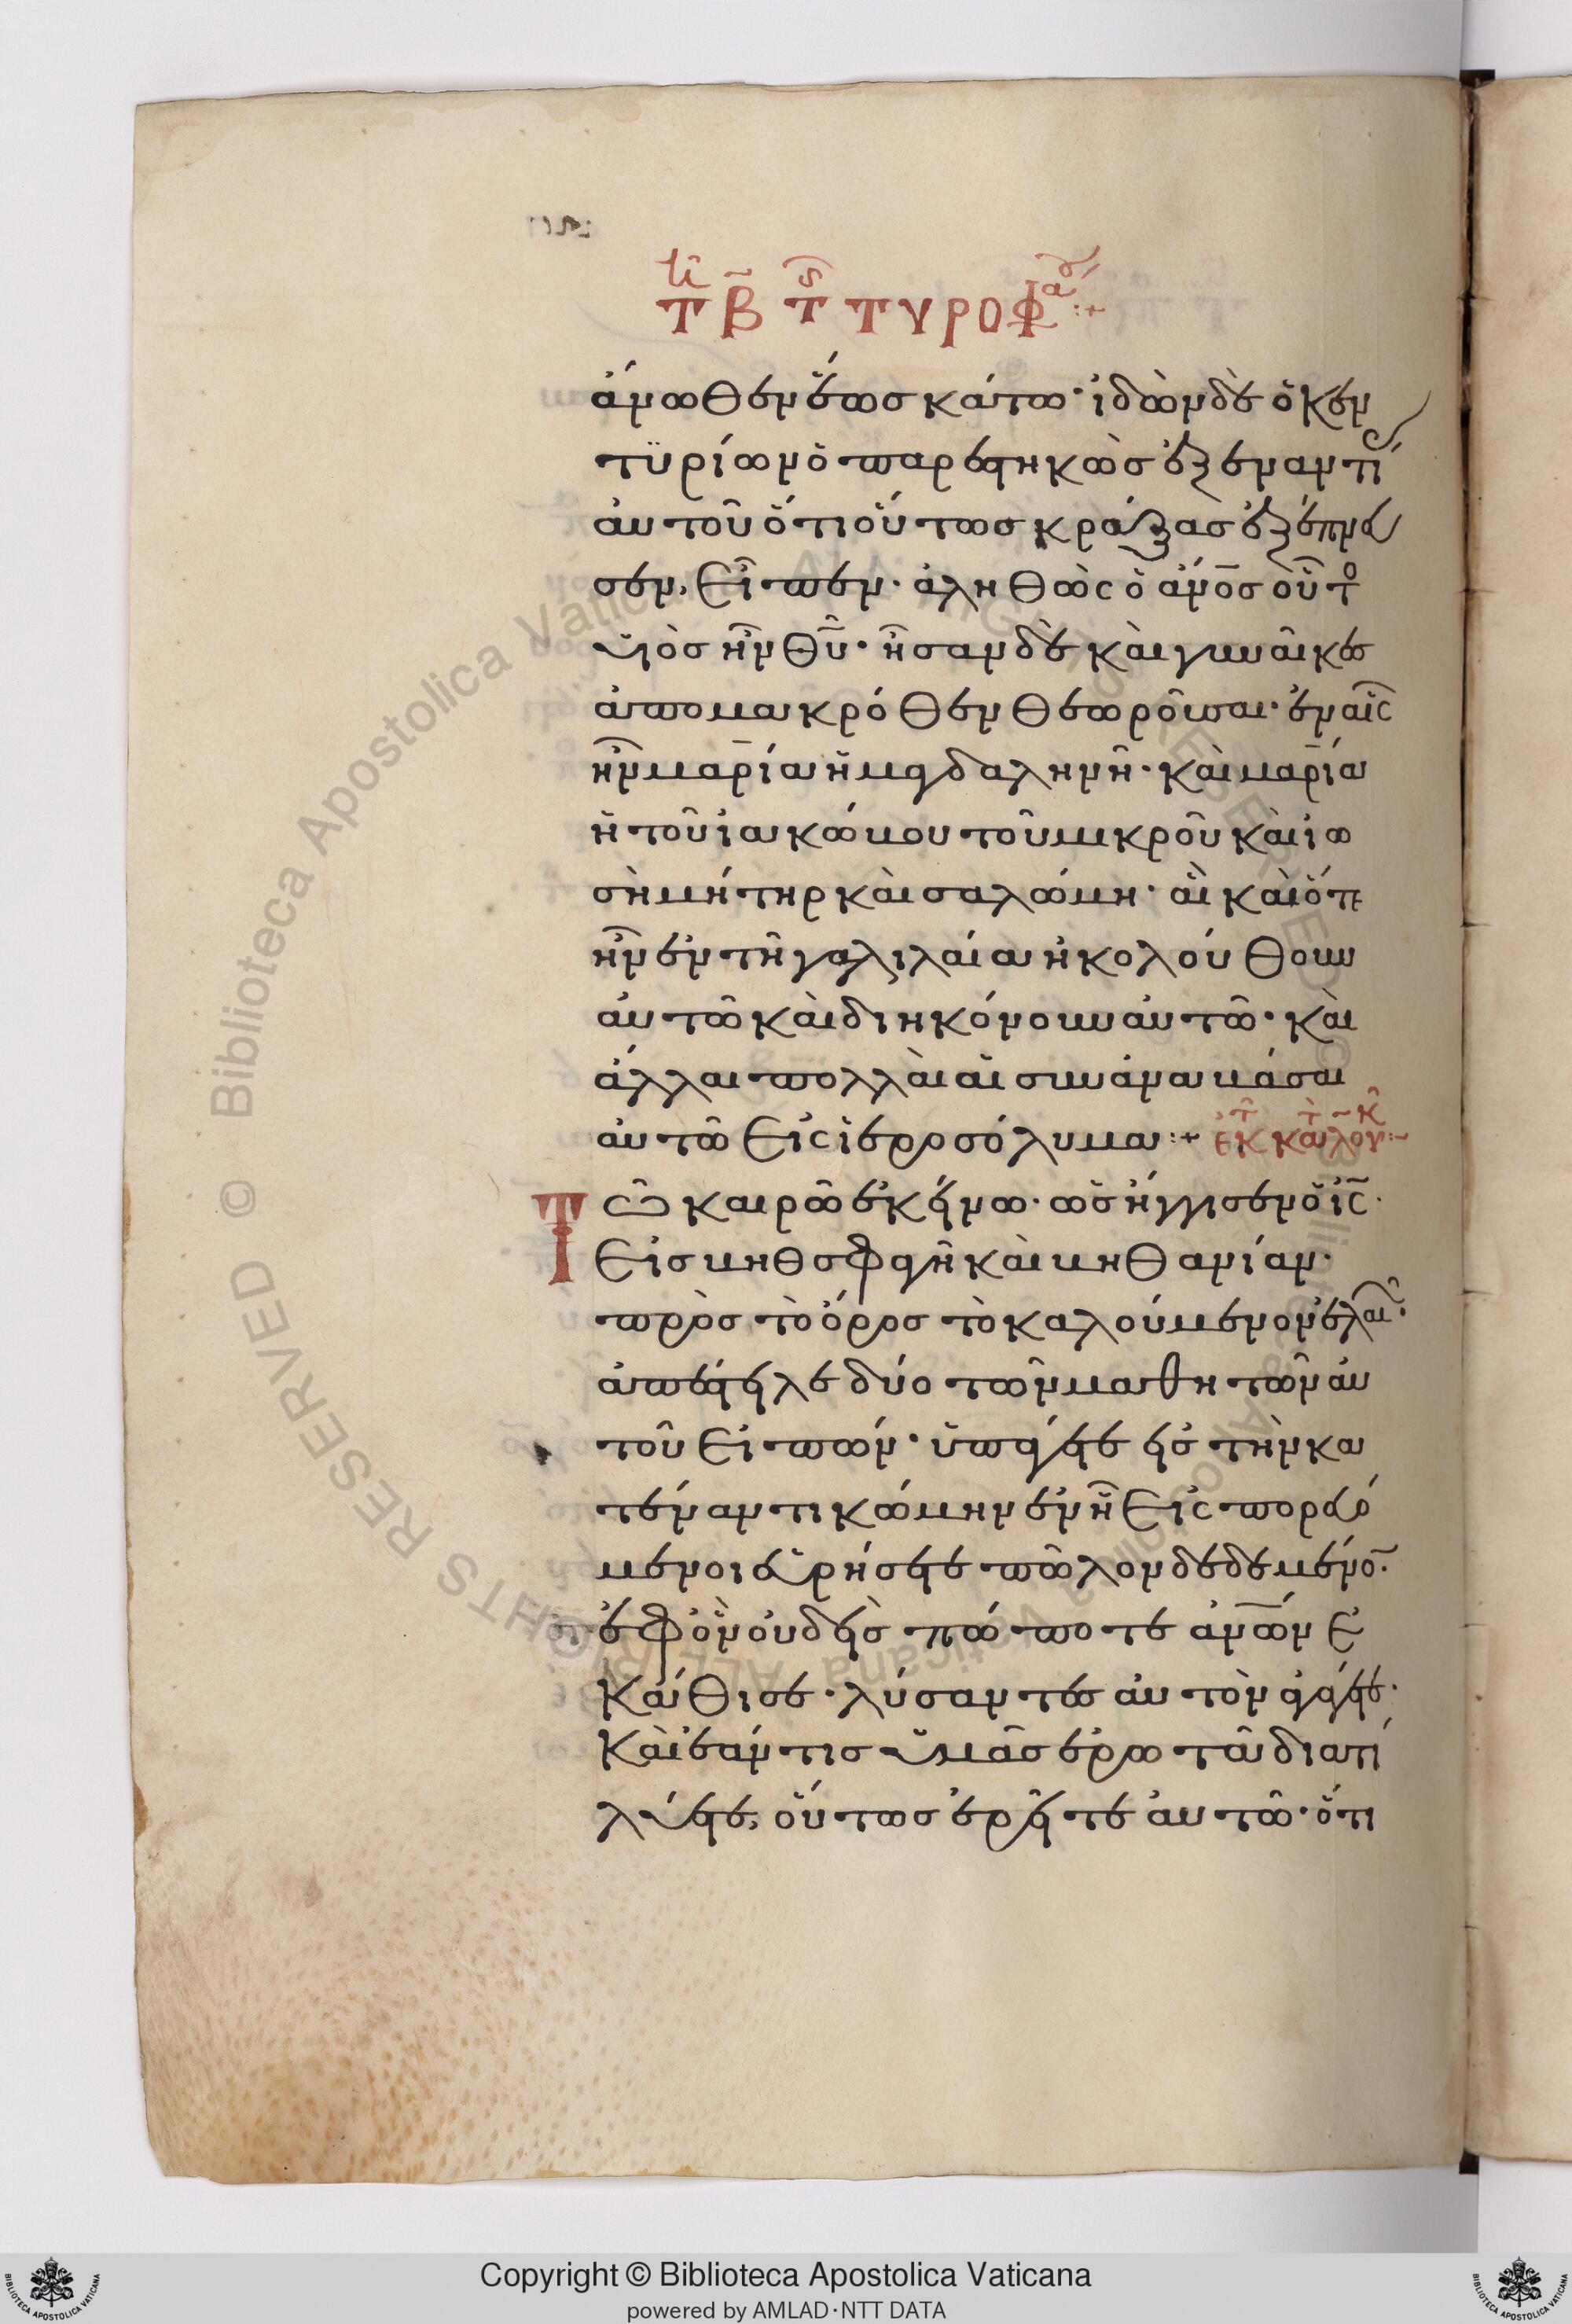 τῇ β̄ τῆς τυροφά:+
ἄνωθεν ἕως κάτω· ἰδὼν δὲ ὁ κεν
τυρίων ὁ παρεστηκὼς ἐξ ἐναντί
αὐτοῦ ὅτι οὕτως κράξας ἐξέπνευ
σεν, εἶπεν· ἀληθῶς ὁ ἄνος οὗτο
υἱὸς ἦν θῦ· ἦσαν δὲ καὶ γυναῖκες
ἀπομακρόθεν θεωροῦσαι· ἐν αἷς
ἦν μαρία ἡ μαγδαληνῆ· καὶ μαρία
ἡ τοῦ ἰακώβου τοῦ μικροῦ καὶ ἰω
σὴ μήτηρ καὶ σαλώμη· αἳ καὶ ὅτε
ἦν ἐν τῇ γαλιλαία ἠκολούθουν
αὐτῶ καὶ διηκόνουν αὐτῶ· καὶ
ἄλλαι πολλαὶ αἱ συναναβάσαι
αὐτῶ εἰς ἱεροσόλυμα:+ ἐκ τ κατ λουκ:-
Τῶ καιρῶ ἐκείνω· ὡς ἤγγισεν ὁ ἰς·
εἰς βηθσφαγῆ καὶ βηθανίαν·
πρὸς τὸ ὄρος τὸ καλούμενον ἐλαι·
ἀπέστειλε δύο τῶν μαθητῶν αὐ
τοῦ εἰπών· ὑπάγετε εἰς τὴν κα
τέναντι κώμην ἐν ἧ εἰσπορευό
μενοι εὑρήσετε πῶλον δεδεμένο̄·
ἐφ' ὃν οὐδεὶς πώποτε ἀνων ἐ
κάθισε· λύσαντες αὐτὸν ἀγάγετε·
καὶ ἐάν τις ὑμᾶς ἐρωτᾶ διατί
λύετε, οὕτως ἐρεῖτε αὐτῶ· ὅτι
Copyright © Biblioteca Apostolica Vaticana
powered by AMLAD·NTT DATA